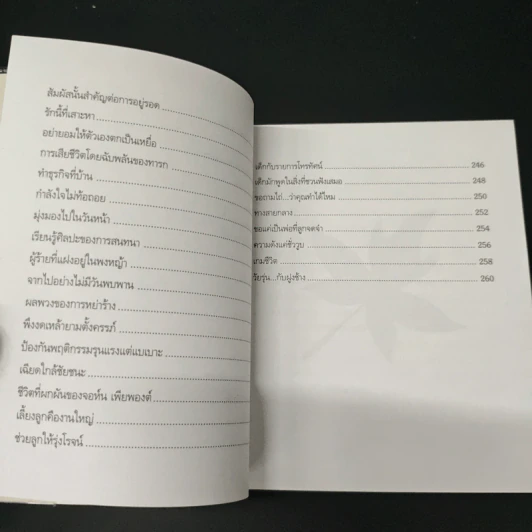 สัมผัสนั้นสำคัญต่อการอยู่รอด
รักนี้ที่เสาะหา
อย่ายอมให้ตัวเองตกเป็นเหยื่อ
การเสียชีวิตโดยฉับพลันของทารก
ทำธุรกิจที่บ้าน
กำลังใจไม่ท้อถอย
มุ่งมองไปในวันหน้า
เรียนรู้ศิลปะของการสนทนา
ผู้ร้ายที่แฝงอยู่ในพงหญ้า
จากไปอย่างไม่มีวันพบพาน
ผลพวงของการหย่าร้าง
พึงงดเหล้ายามตั้งครรภ์
ป้องกันพฤติกรรมรุนแรงแต่แบเบาะ
เฉียดใกล้ชัยชนะ
ชีวิตที่ผกผันของจอห์น เพียพอนต์
เลี้ยงลูกคืองานใหญ่
ช่วยลูกให้รุ่งโรจน์
เด็กกับรายการโทรทัศน์ 246
เด็กมักพูดในสิ่งที่ชวนฟังเสมอ 248
ขอถามไถ่...ว่าคุณทำได้ไหม 250
ทางสายกลาง 252
ขอแค่เป็นพ่อที่ลูกจดจำ 254
ความดังแค่ชั่ววูบ 256
เกมชีวิต 258
วัยรุ่น...กับมุ่งช้าง 260